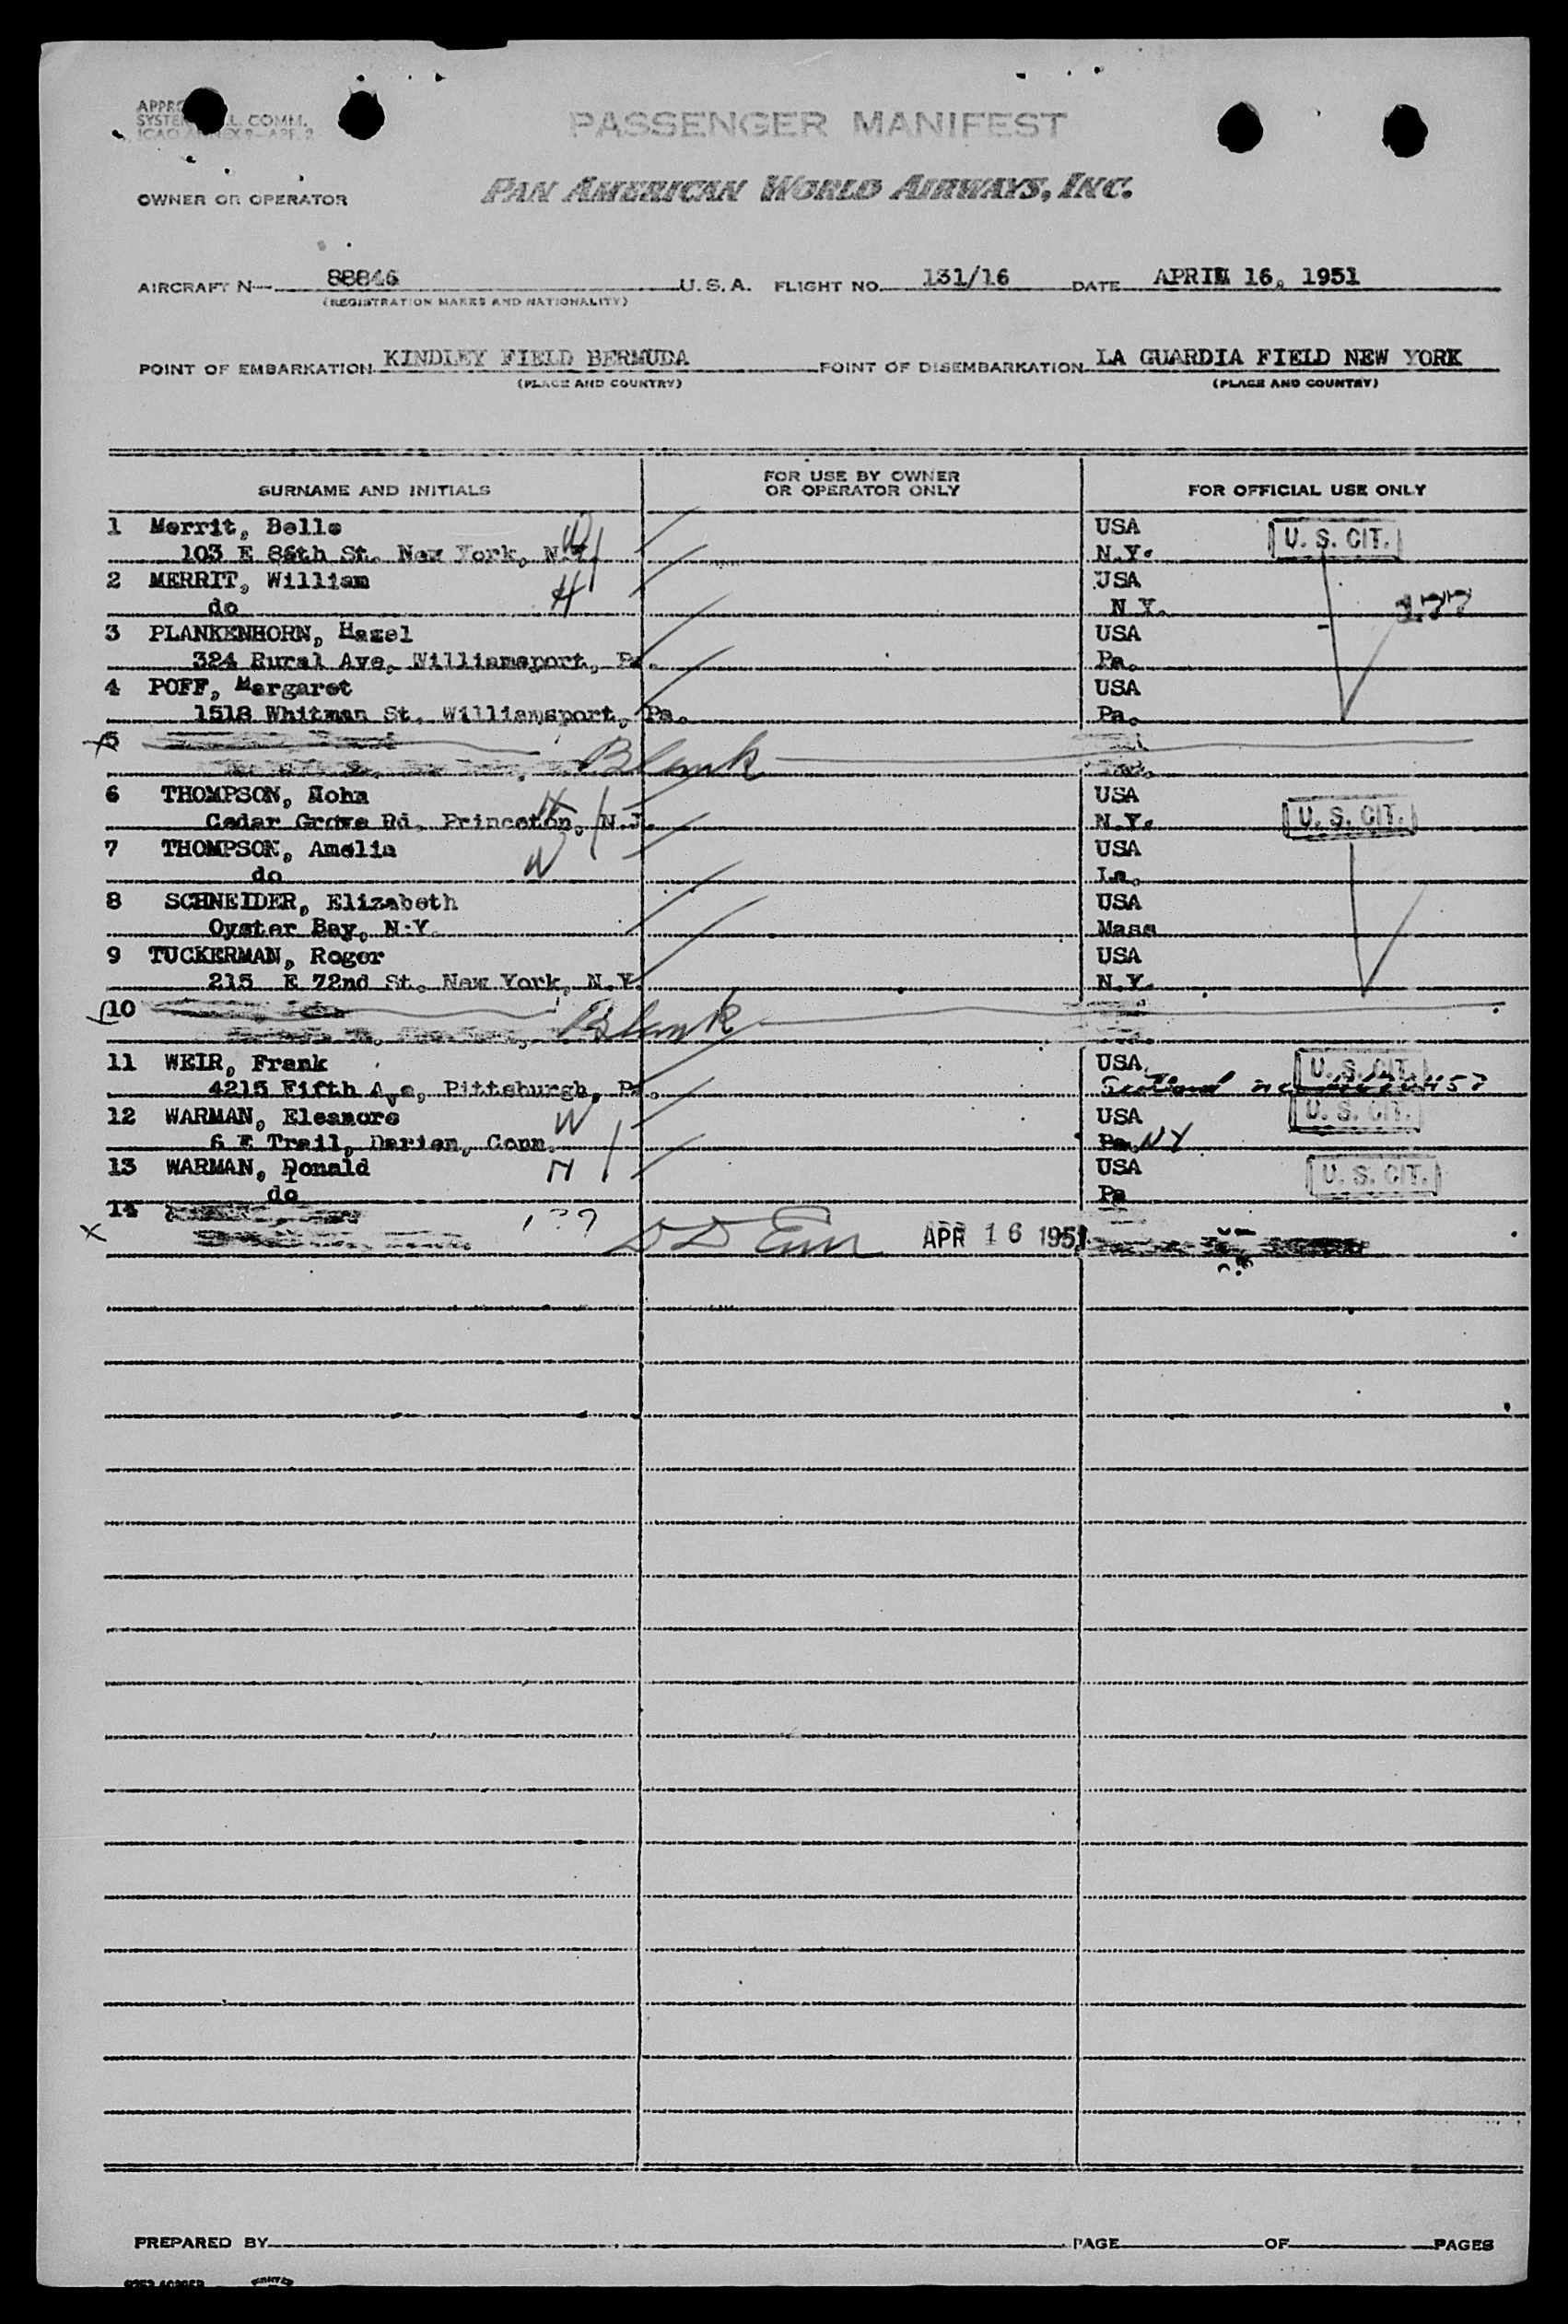 PASSENGER MANIFEST
OWNER OR OPERATOR PAN AMERICAN WORLD AIRWAYS, INC.
AIRCRAFT N— 88846 U. S. A. FLIGHT NO. 131/16 DATE APRIL 16, 1951
(REGISTRATION MARKS AND NATIONALITY)
POINT OF EMBARKATION KINDLEY FIELD BERMUDA POINT OF DISEMBARKATION LA GUARDIA FIELD NEW YORK
(PLACE AND COUNTRY) (PLACE AND COUNTRY)
SURNAME AND INITIALS FOR USE BY OWNER OR OPERATOR ONLY FOR OFFICIAL USE ONLY
1 Merrit, Belle W USA U. S. CIT.
103 E 86th St. New York, N.Y. N.Y.
2 MERRIT, William H USA
do N.Y. 177
3 PLANKENHORN, Hazel USA
324 Rural Ave, Williamsport, Pa. Pa.
4 POFF, Margaret USA
1518 Whitman St. Williamsport, Pa. Pa.
5 Blank
6 THOMPSON, H USA U. S. CIT.
Cedar Grove Rd, Princeton, N.J. N.Y.
7 THOMPSON, Amelia W USA
do La.
8 SCHNEIDER, Elizabeth USA
Oyster Bay, N.Y. Mass
9 TUCKERMAN, Roger USA
215 E 72nd St. New York, N.Y. N.Y.
10 Blank
11 WEIR, Frank USA U. S. CIT.
4215 Fifth Ave, Pittsburgh, Pa. Scotland
12 WARMAN, Eleanore W USA U. S. CIT.
6 E Trail, Darien, Conn. Pa NY
13 WARMAN, Donald H USA U. S. CIT.
do Pa
14
APR 16 1951
PREPARED BY PAGE OF PAGES